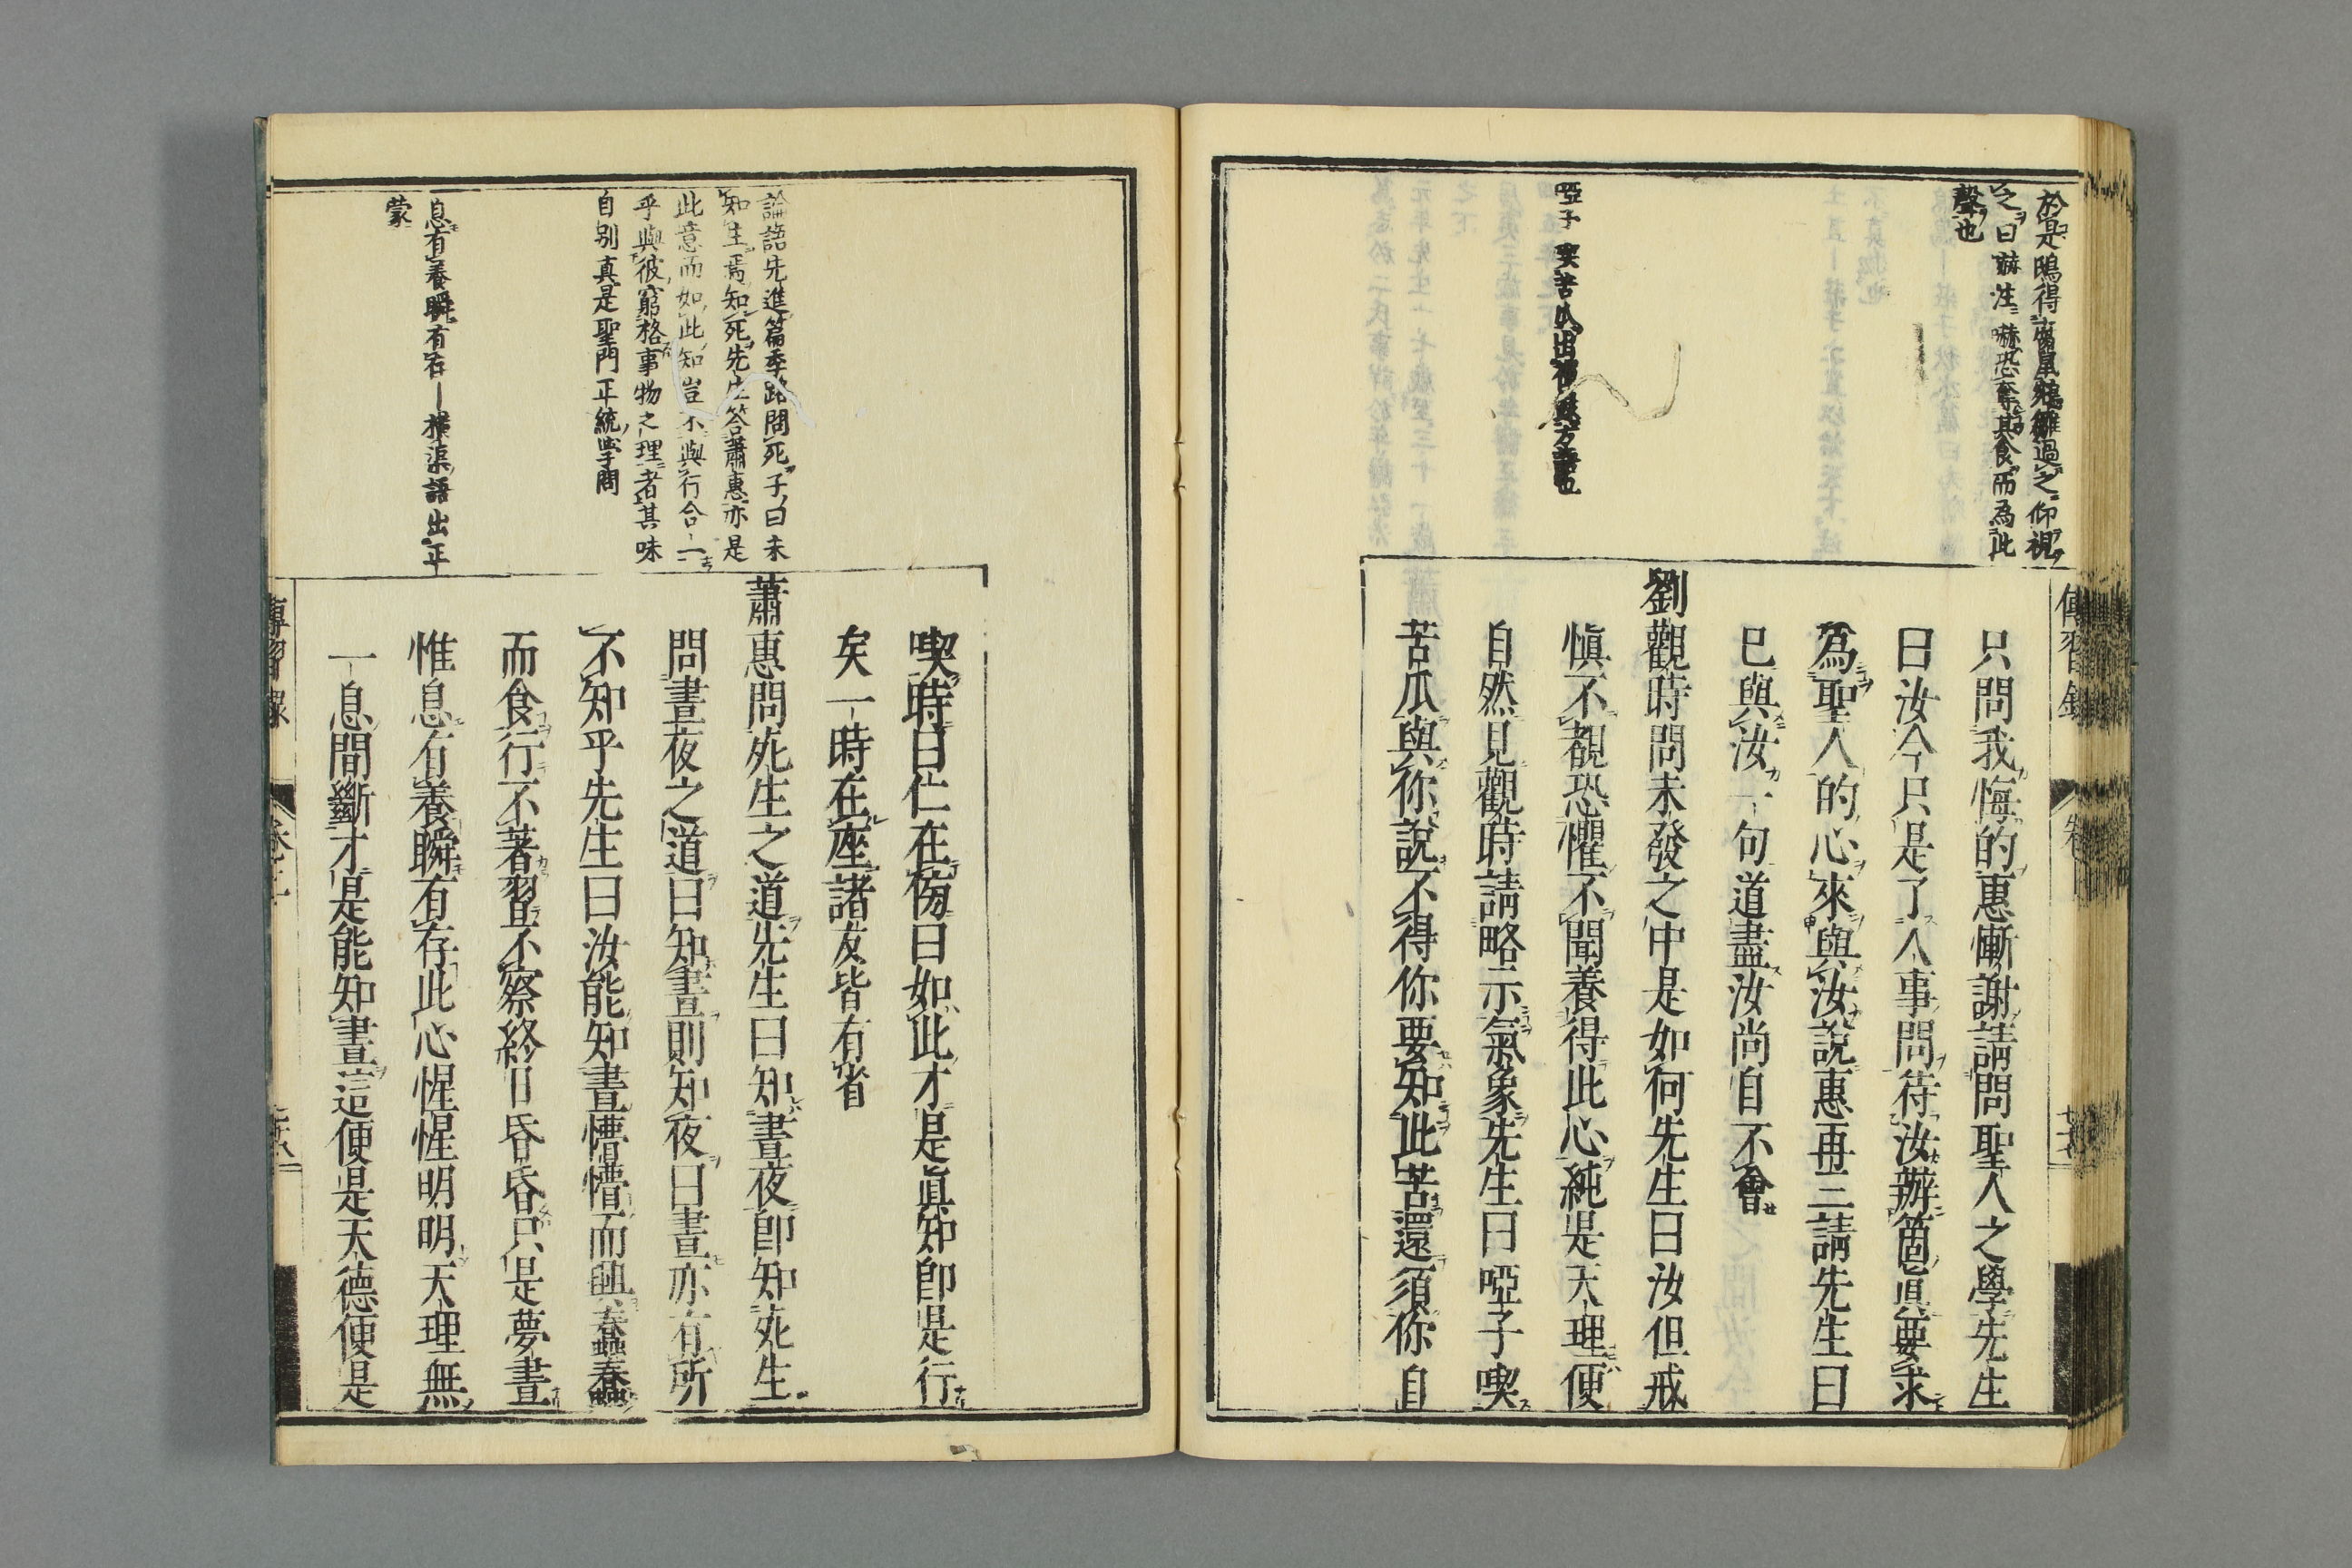 於是鴟得腐鼠鵷鶵過之仰視
之曰嚇註嚇恐奪其食而為此
聲也
啞子喫苦瓜出禪

傳習錄
卷
只問我悔的惠慚謝請問聖人之學先生
曰汝今只是了人事問待汝辦箇眞要求
爲聖人的心來與汝說惠再三請先生曰
已與汝一句道盡汝尚自不會
劉觀時問未發之中是如何先生曰汝但戒
愼不覩恐懼不聞養得此心純是天理便
自然見觀時請略示氣象先生曰啞子喫
苦瓜與你說不得你要知此苦還須你自

論語先進篇季路問死子曰未
知生焉知死先生答蕭惠亦是
此意而如此知豈不與行合一
乎與彼窮格事物之理者其味
自别真是聖門正統學問
息有養瞬有存—橫渠語出正
蒙

喫時曰仁在傍曰如此才是眞知卽是行
矣一時在座諸友皆有省
蕭惠問死生之道先生曰知晝夜卽知死生
問晝夜之道曰知晝則知夜曰晝亦有所
不知乎先生曰汝能知晝懵懵而興蠢蠢
而食行不著習不察終日昏昏只是夢晝
惟息有養瞬有存此心惺惺明明天理無
一息間斷才是能知晝這便是天德便是
傳習錄